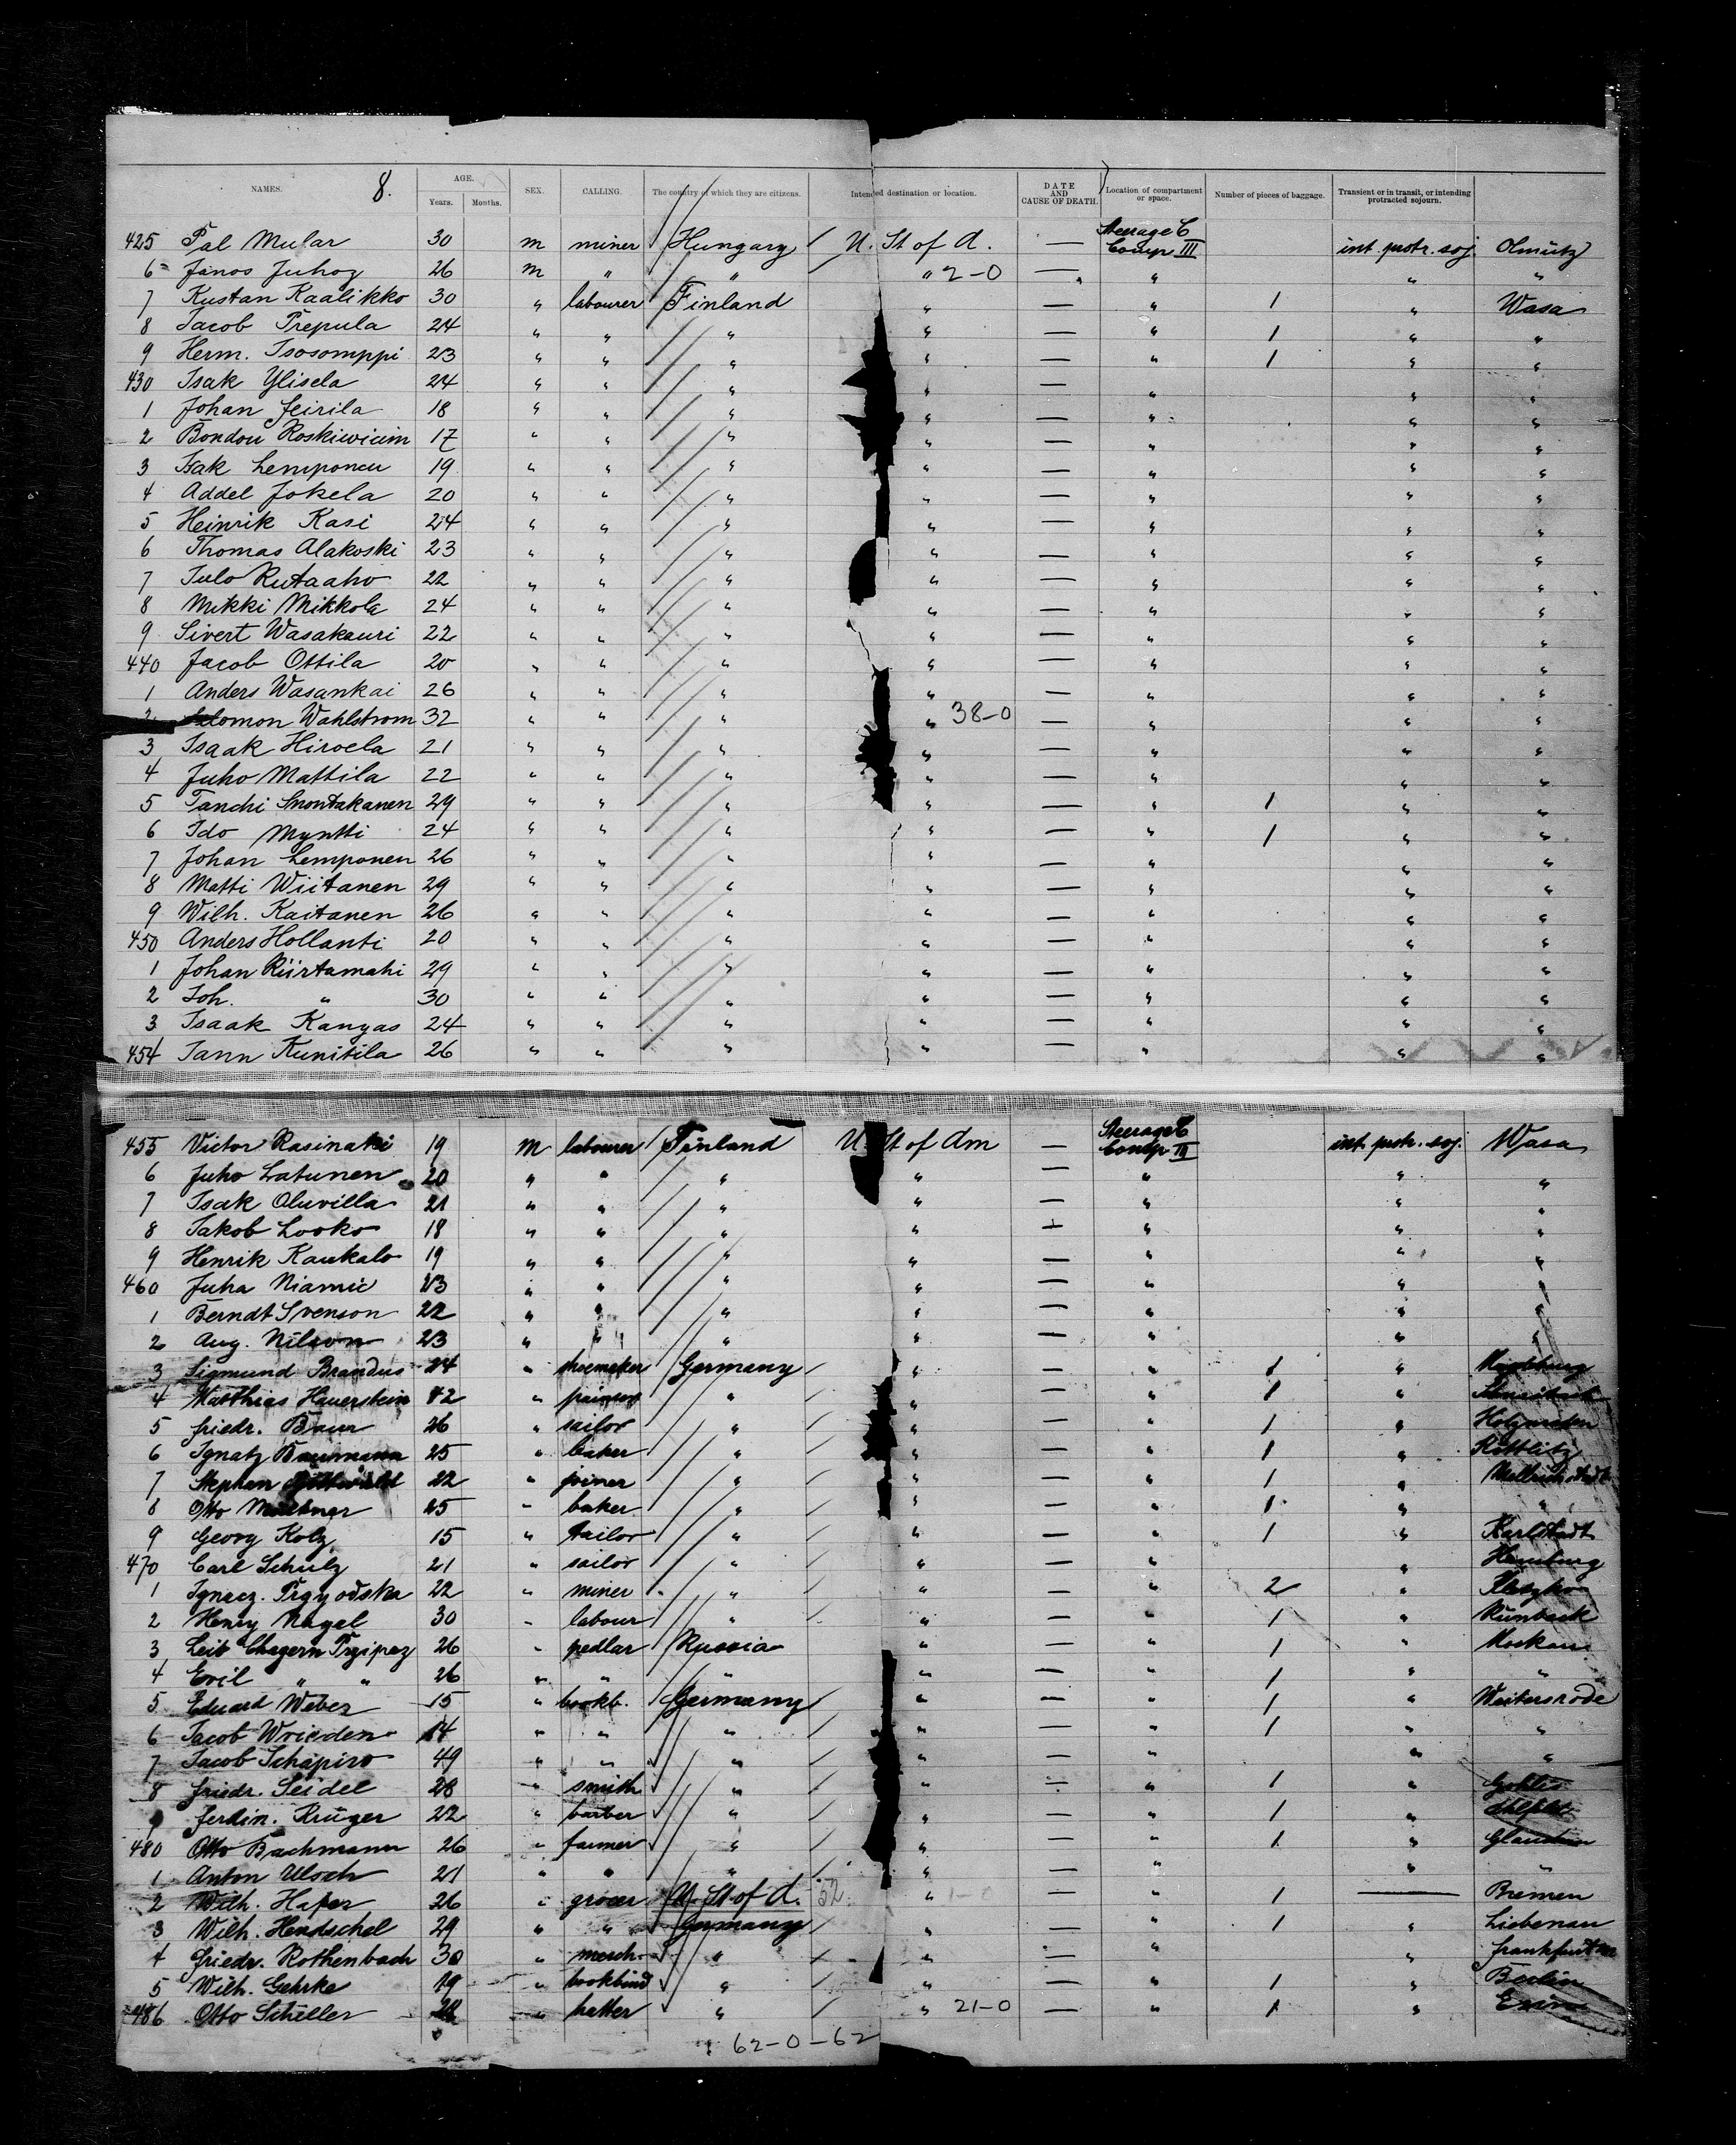 8.
NAMES. AGE. Years. Months. SEX. CALLING. The country of which they are citizens. Intended destination or location. DATE AND CAUSE OF DEATH. Location of compartment or space. Number of pieces of baggage. Transient or in transit, or intending protracted sojourn.
425 Pal Mular 30 m miner Hungary U. St of A. — Steerage C Comp III int. protr. soj. Olmütz
6 Janos Juhoz 26 m " " " 2-0 — " " "
7 Kustan Kaalikko 30 " labourer Finland " — " 1 " Wasa
8 Jacob Prepula 24 " " " " — " 1 " "
9 Herm. Isosomppi 23 " " " " — " 1 " "
430 Isak Ylisela 24 " " " " — " " "
1 Johan Jeirila 18 " " " " — " " "
2 Bondou Roskiwicim 17 " " " " — " " "
3 Isak Lemponen 19 " " " " — " " "
4 Addel Jokela 20 " " " " — " " "
5 Heinrik Kasi 24 " " " " — " " "
6 Thomas Alakoski 23 " " " " — " " "
7 Julo Rutaaho 22 " " " " — " " "
8 Mikki Mikkola 24 " " " " — " " "
9 Sivert Wasakauri 22 " " " " — " " "
440 Jacob Ottila 20 " " " " — " " "
1 Anders Wasankai 26 " " " " — " " "
2 Salomon Wahlstrom 32 " " " " 38-0 — " " "
3 Isaak Hiroela 21 " " " " — " " "
4 Juho Mattila 22 " " " " — " " "
5 Tanchi Snontakanen 29 " " " " — " 1 " "
6 Ido Myntti 24 " " " " — " 1 " "
7 Johan Lemponen 26 " " " " — " " "
8 Matti Wiitanen 29 " " " " — " " "
9 Wilh. Kaitanen 26 " " " " — " " "
450 Anders Hollanti 20 " " " " — " " "
1 Johan Riirtamahi 29 " " " " — " " "
2 Joh. " 30 " " " " — " " "
3 Isaak Kangas 24 " " " " — " " "
454 Jann Kunitila 26 " " " " — " " "
455 Victor Rasinaki 19 M labourer Finland U. St of Am — Steerage C Comp III int. protr. soj. Wasa
6 Juho Latunen 20 " " " " — " " "
7 Isak Oluvilla 21 " " " " — " " "
8 Jakob Looko 18 " " " " — " " "
9 Henrik Kaukalo 19 " " " " — " " "
460 Juha Niamic 23 " " " " — " " "
1 Berndt Svenson 22 " " " " — " " "
2 Aug. Nilson 23 " " " " — " " "
3 Sigmund Brandus 24 " shoemaker Germany " — " 1 "
4 Matthias Hauerstein 42 " painter " " — " 1 "
5 Friedr. Baur 26 " sailor " " — " 1 " Holzminden
6 Ignatz Baumann 25 " baker " " — " 1 " Röttlitz
7 Stephan 22 " joiner " " — " 1 " Mellrichstadt
8 Otto 25 " baker " " — " 1 " "
9 Georg Kolz 15 " tailor " " — " 1 " Karlstadt
470 Carl Schulz 21 " sailor " " — " " Hamburg
1 Ignacz. 22 " miner " " — " 2 "
2 Henry Nagel 30 " labour " " — " 1 "
3 Leib Chagern Przipaz 26 " pedlar Russia " — " 1 " Moskau
4 Evil " " 26 " " " " — " 1 " "
5 Eduard Weber 15 " bookb. Germany " — " 1 " Weitersrode
6 Jacob Wrieden 14 " " " " — " 1 " "
7 Jacob Schapiro 49 " " " " — " " "
8 Friedr. Seidel 28 " smith " " — " 1 " Gohlis
9 Ferdin. Krüger 22 " barber " " — " 1 "
480 Otto Bachmann 26 " farmer " " — " 1 " Glauchau
1 Anton Ulsch 21 " " " " — " " "
2 Wilh. Hafer 26 " grocer U. St of A. 52 " 1-0 — " 1 — Bremen
3 Wilh. Hendschel 29 " " Germany " — " 1 " Liebenau
4 Friedr. Rothenbach 30 " merch. " " — " " Frankfurt
5 Wilh. Gehrke 19 " bookbind " " — " 1 " Berlin
486 Otto Schiller " hatter " " 21-0 — " 1 "
62-0-62